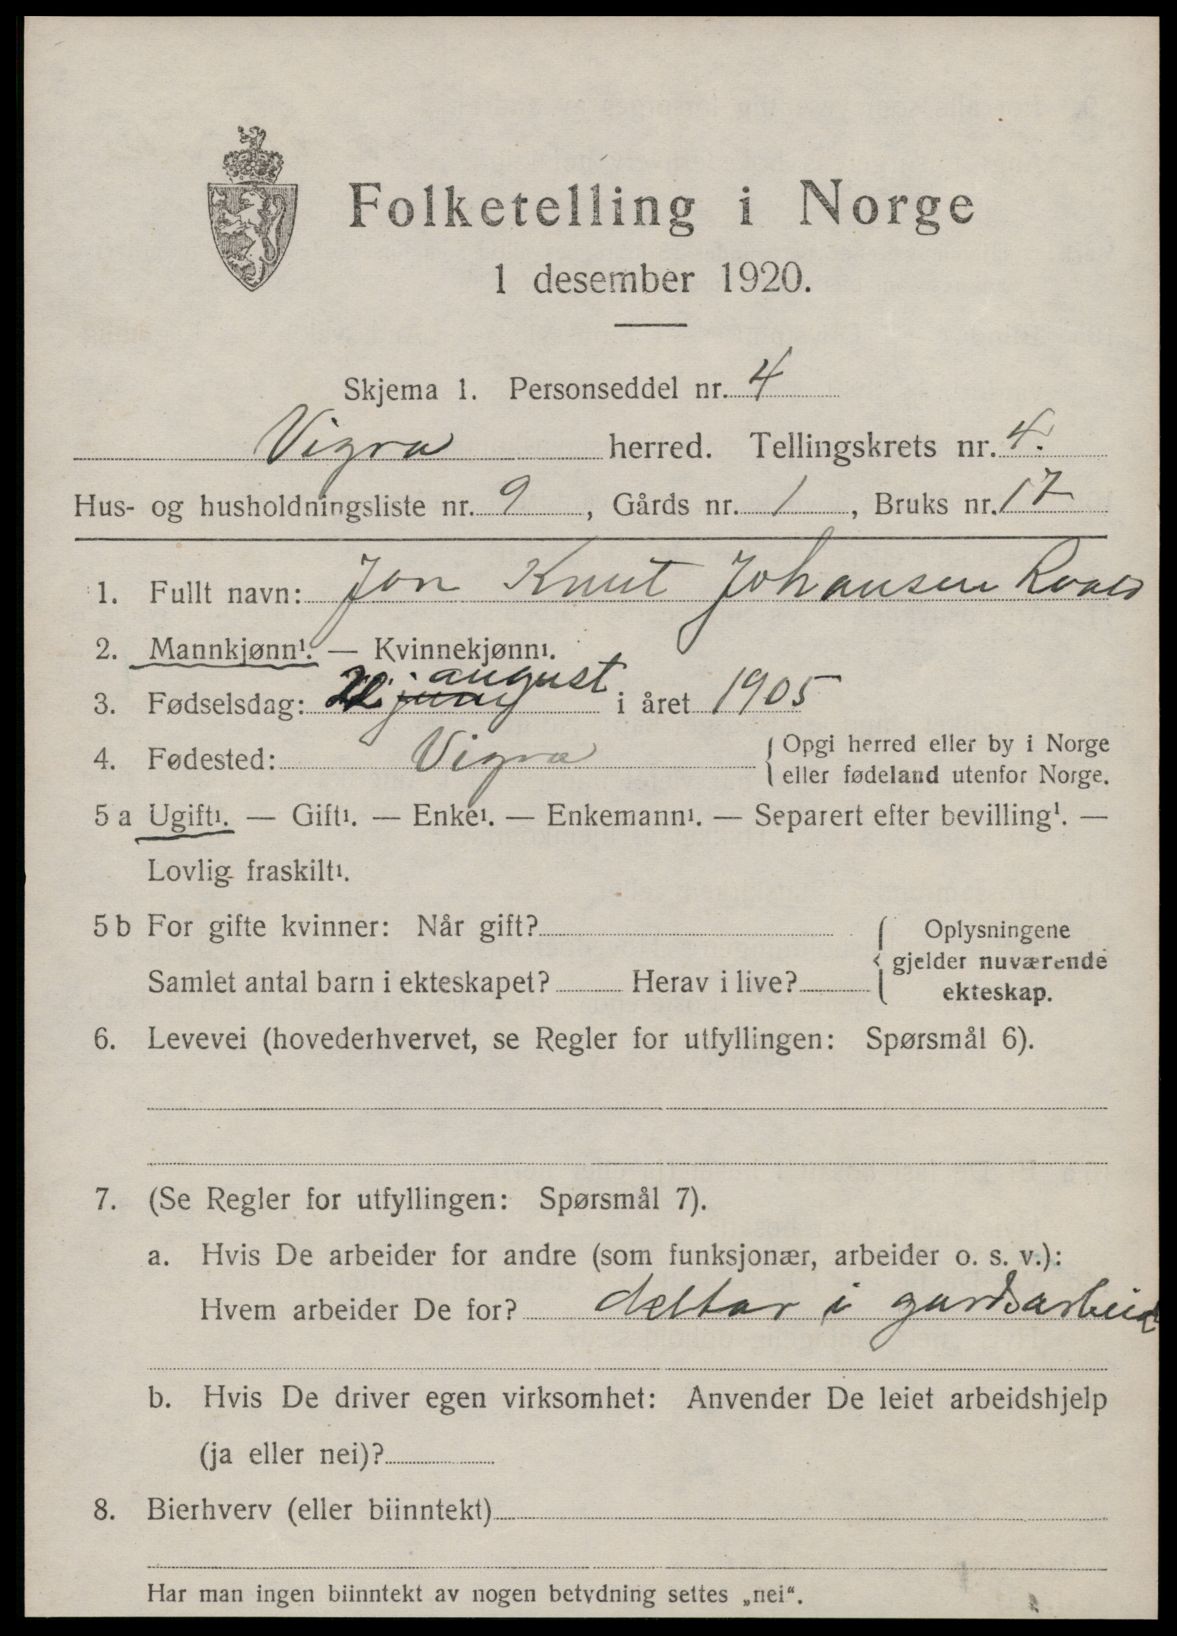 Folketelling i Norge
1 desember 1920.
Skjema 1. Personseddel nr. 4
Vigra herred. Tellingskrets nr. 4.
Hus- og husholdningsliste nr. 9, Gårds nr. 1, Bruks nr. 17
1. Fullt navn: Jon Knut Johansen Roald
2. Mannkjønn¹. — Kvinnekjønn¹.
august
3. Fødselsdag: i året 1905
4. Fødested: Vigra { Opgi herred eller by i Norge
eller fødeland utenfor Norge.
5 a Ugift¹. — Gift¹. — Enke¹. — Enkemann¹. — Separert efter bevilling¹. —
Lovlig fraskilt¹.
5 b For gifte kvinner: Når gift? { Oplysningene
gjelder nuværende
Samlet antal barn i ekteskapet? Herav i live?
ekteskap.
6. Levevei (hovederhvervet, se Regler for utfyllingen: Spørsmål 6).
7. (Se Regler for utfyllingen: Spørsmål 7).
a. Hvis De arbeider for andre (som funksjonær, arbeider o. s. v.):
Hvem arbeider De for? deltar i gardsarbeid
b. Hvis De driver egen virksomhet: Anvender De leiet arbeidshjelp
(ja eller nei)?
8. Bierhverv (eller biinntekt)
Har man ingen biinntekt av nogen betydning settes „nei“.